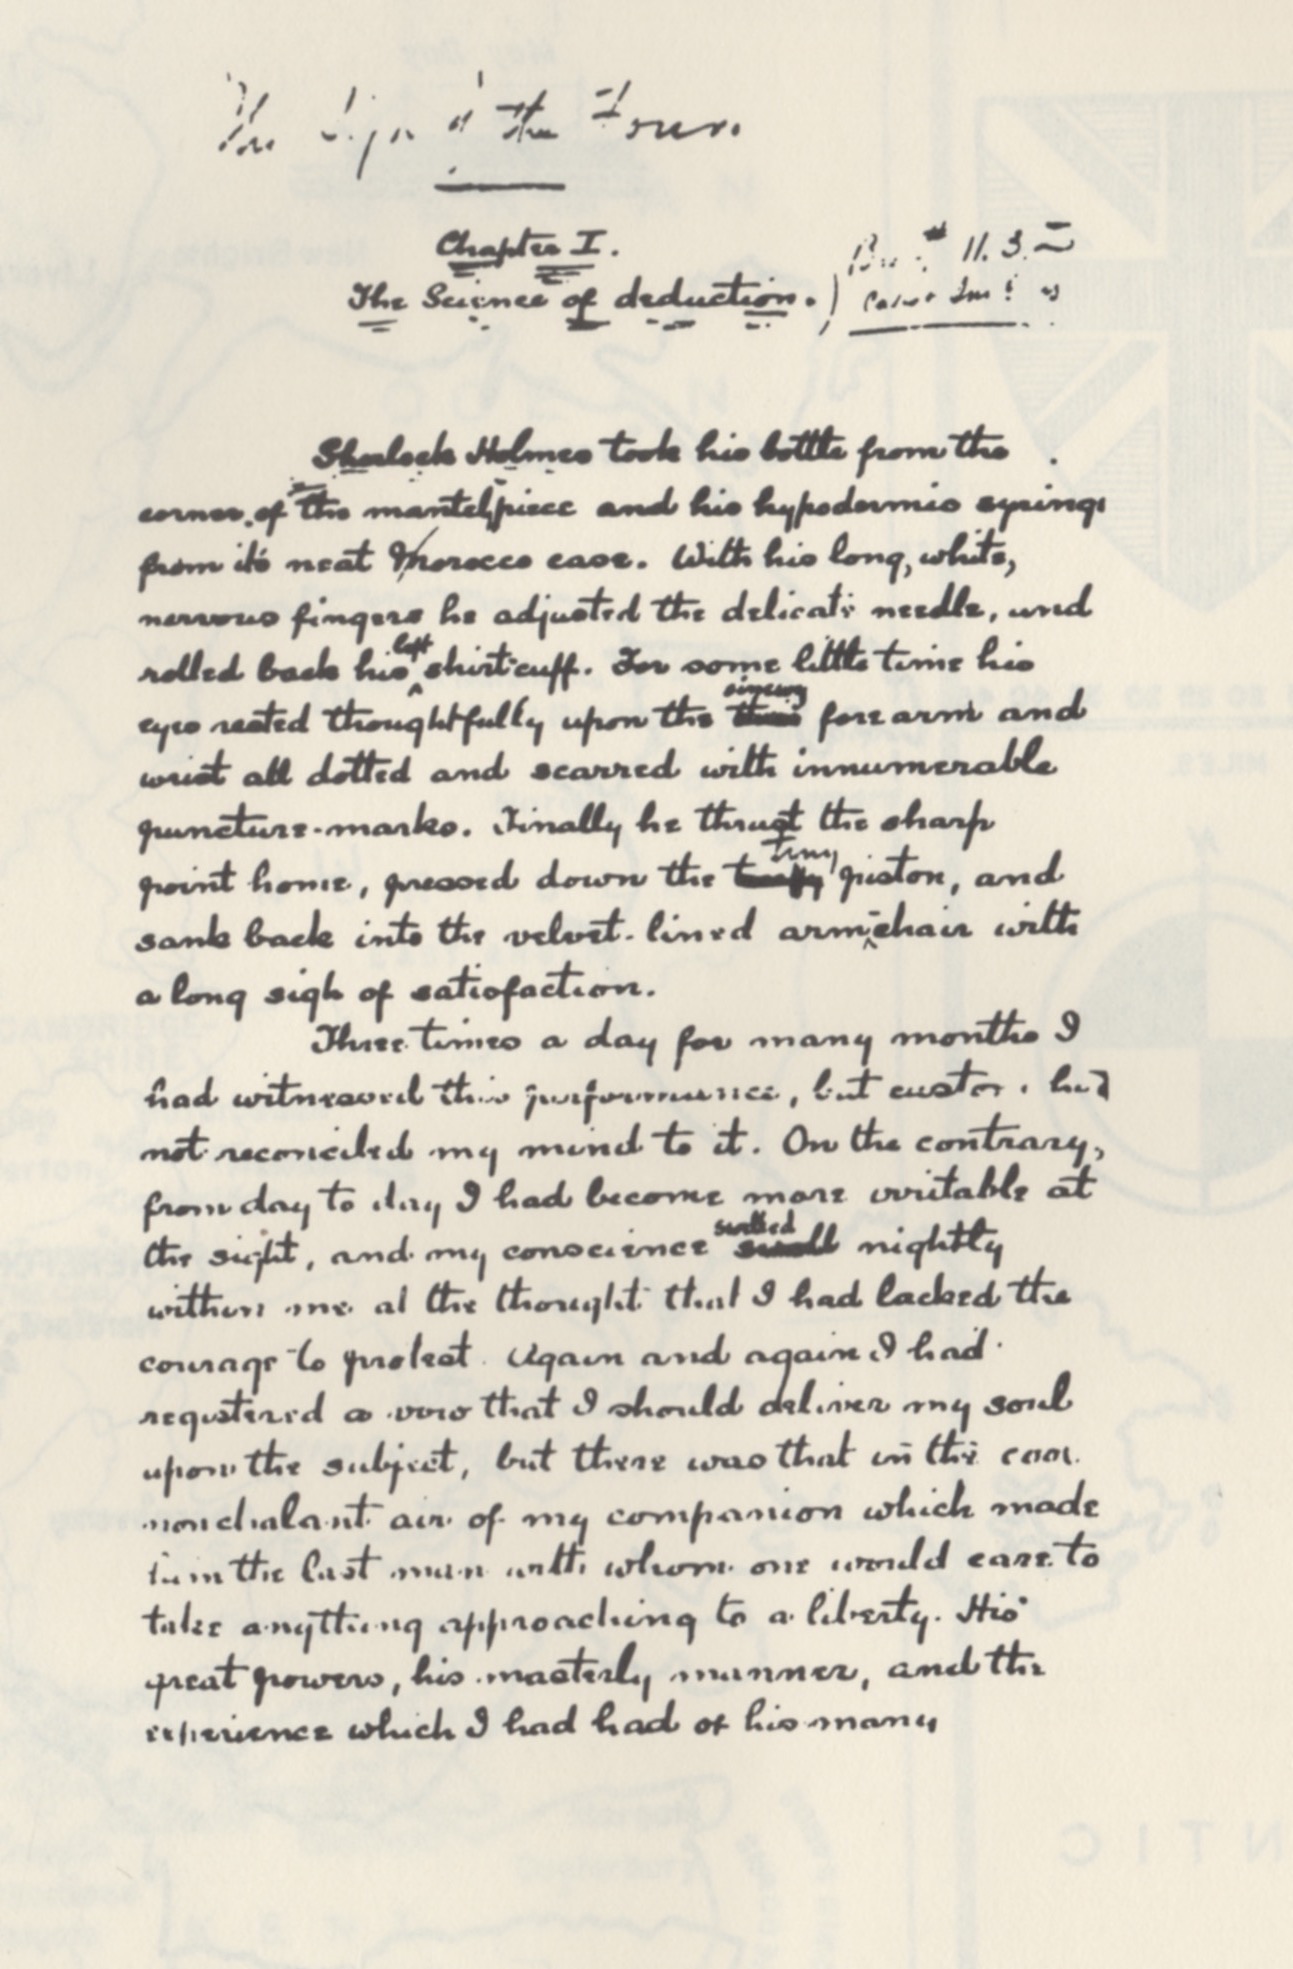 The Sign of the Four.
Chapter I.
The Science of deduction.)
Sherlock Holmes took his bottle from the
corner of the mantelpiece and his hypodermic syringe
from its neat Morocco case. With his long, white,
nervous fingers he adjusted the delicate needle, and
rolled back his left shirt-cuff. For some little time his
eyes rested thoughtfully upon the sinewy forearm and
wrist all dotted and scarred with innumerable
puncture-marks. Finally he thrust the sharp
point home, pressed down the tiny piston, and
sank back into the velvet-lined arm-chair with
a long sigh of satisfaction.
Three times a day for many months I
had witnessed this performance, but custom had
not reconciled my mind to it. On the contrary,
from day to day I had become more irritable at
the sight, and my conscience swelled nightly
within me at the thought that I had lacked the
courage to protest. Again and again I had
registered a vow that I should deliver my soul
upon the subject, but there was that in the cool
nonchalant air of my companion which made
him the last man with whom one would care to
take anything approaching to a liberty. His
great powers, his masterly manner, and the
experience which I had had of his many